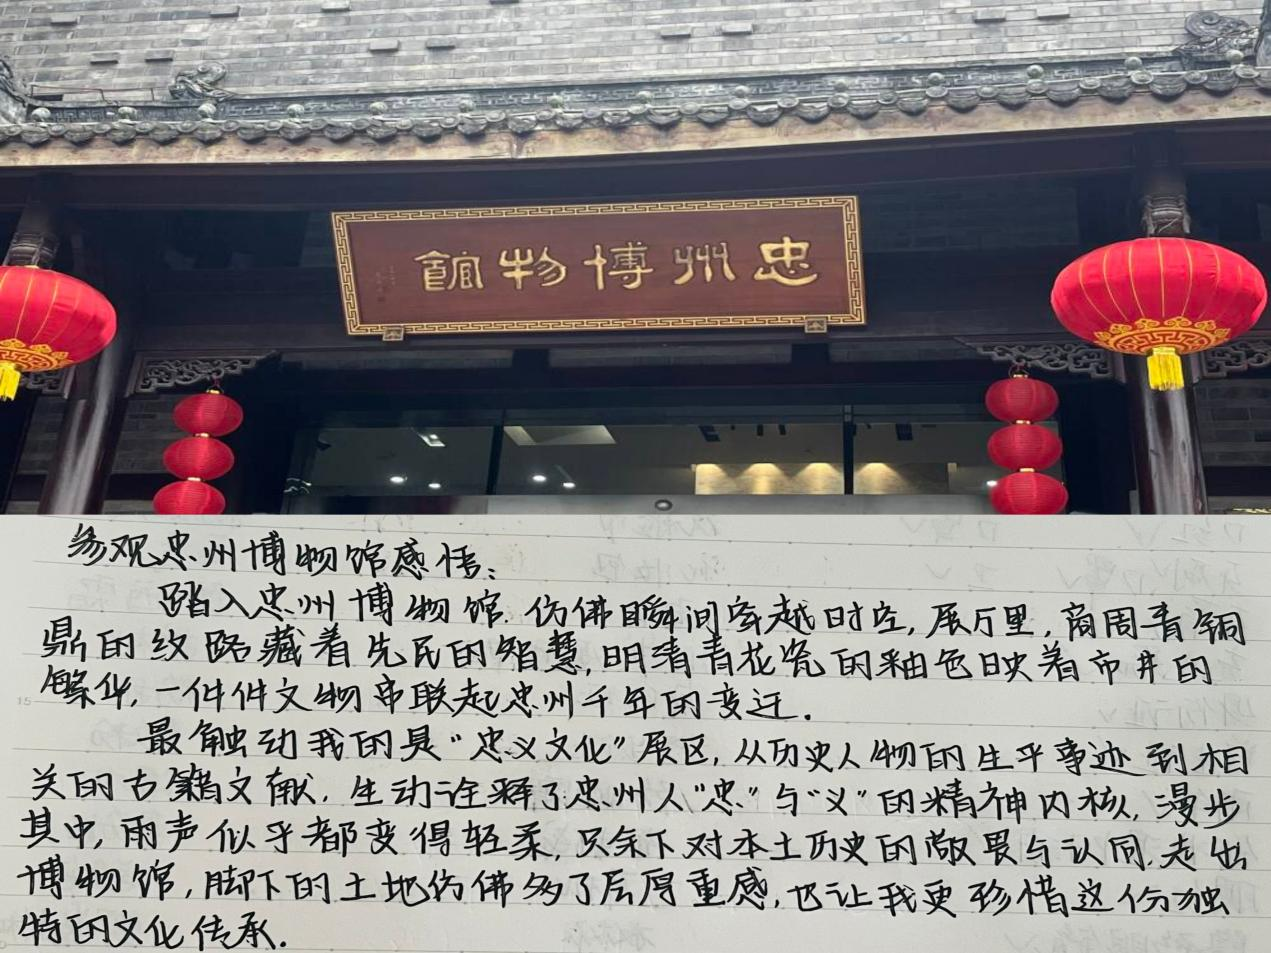 忠州博物館
参观忠州博物馆感悟:
踏入忠州博物馆.仿佛瞬间穿越时空,展厅里,商周青铜
鼎的纹路藏着先民的智慧,明清青花瓷的釉色映着市井的
繁华,一件件文物串联起忠州千年的变迁.
最触动我的是“忠义文化”展区,从历史人物的生平事迹到相
关的古籍文献.生动诠释了忠州人“忠”与“义”的精神内核,漫步
其中,雨声似乎都变得轻柔,只余下对本土历史的敬畏与认同.走出
博物馆,脚下的土地仿佛多了层厚重感,也让我更珍惜这份独
特的文化传承.